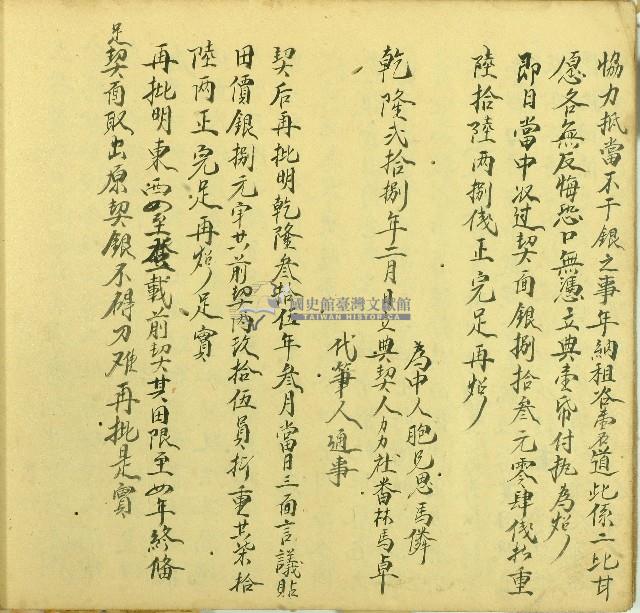 協力抵當不干銀之事年納租谷壹石道此係二比甘
愿各無反悔恐口無憑立典壹帋付执為炤
即日當中收过契面銀捌拾叁元零肆錢折重
陸拾陸两捌錢正完足再炤
乾隆弍拾捌年二月日立典契人力力社番林馬卓
為中人胞兄思馬憐
代筆人通事
契后再批明乾隆叁拾伍年叁月當日三面言議貼
田價銀捌元宇共前契两玖拾伍員折重共柒拾
陸两正完足再炤足實
再批明東西四至登載前契其田限至四年終備
足契面取出原契銀不碍刁难再批是實
國史館臺灣文獻館
TAIWAN HISTORICA